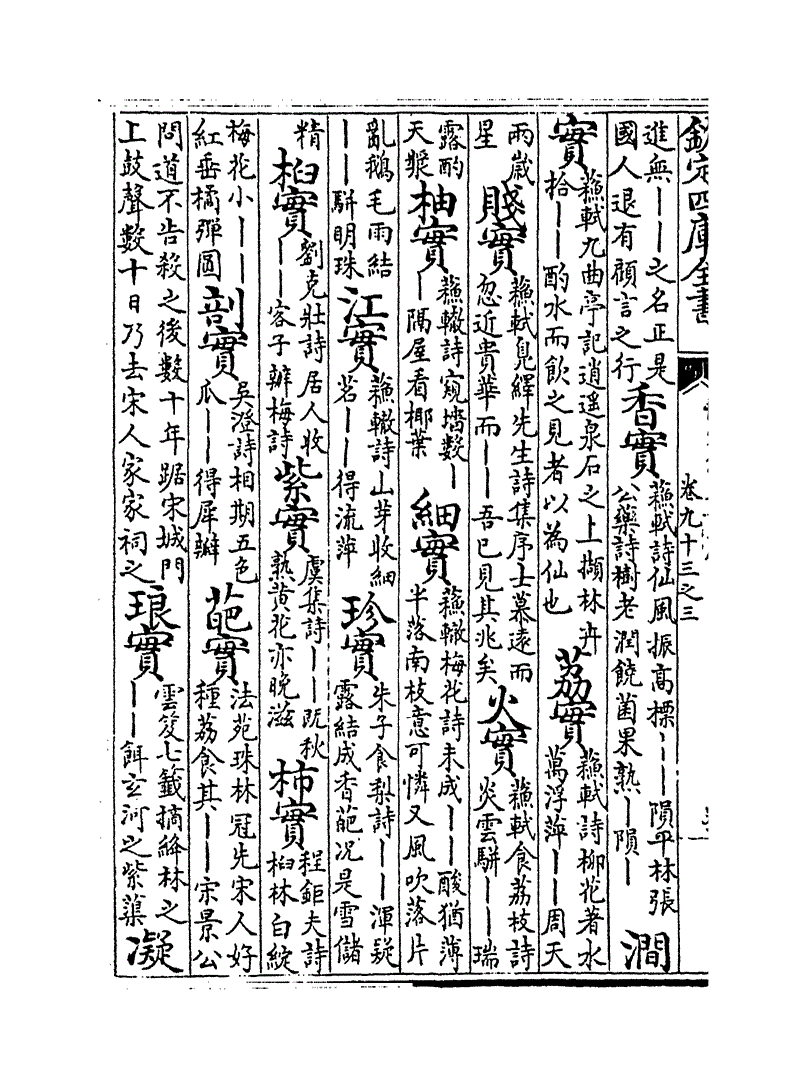 欽定四庫全書
卷九十三之三
進無——之名正是國人退有顧言之行 香實 蘓軾詩仙風振高標——隕平林張公藥詩樹老潤饒菌果熟—隕— 澗
實 蘓軾九曲亭記逍遥泉石之上擷林卉拾——酌水而飲之見者以為仙也 荔實 蘓軾詩柳花著水萬浮萍——周天
兩歲星 賤實 蘓軾鳧繹先生詩集序士慕遠而忽近貴華而——吾已見其兆矣 火實 蘓軾食荔枝詩炎雲駢——瑞
露酌天漿 柚實 蘓轍詩窺墻數——隔屋看椰葉 細實 蘓轍梅花詩未成——酸猶薄半落南枝意可憐又風吹落片
亂鵝毛雨結——駢明珠 江實 蘓轍詩山芽收細茗——得流萍 珍實 朱子食梨詩——渾疑露結成香葩况是雪儲
精 桕實 劉克莊詩居人收——客子辦梅詩 紫實 虞集詩——阮秋熟黄花亦晚滋 柿實 程鉅夫詩桕林白綻
梅花小——紅垂橘彈圓 剖實 吳澄詩相期五色瓜——得犀瓣 葩實 法苑珠林冠先宋人好種荔食其——宋景公
問道不告殺之後數十年踞宋城門上鼓聲數十日乃去宋人家家祠之 琅實 雲笈七籤摘絳林之——餌玄河之紫蕖 凝